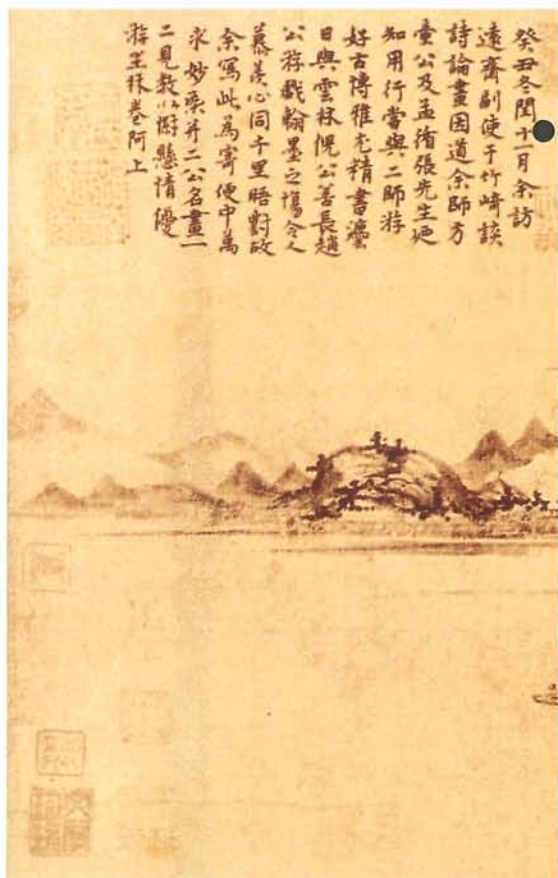 癸丑冬閏十一月余訪
遠齋副使于竹崎談
詩論畫因道余師方
壺公及孟循張先生廼
知用行嘗與二師游
好古博雅尤精書灋
日與雲林倪公善長趙
公游戲翰墨之塲令人
慕羡心同千里晤對故
余寫此為寄便中萬
求妙染并二公名畫一
二見教以慰懸情優
游 卷阿上